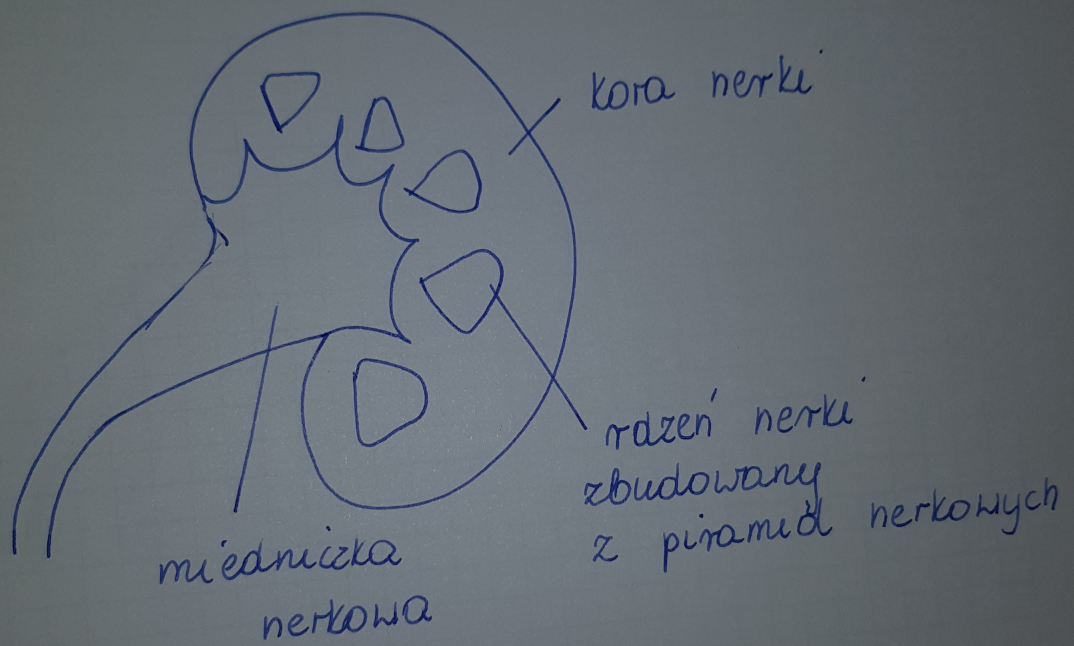 kora nerki
rdzeń nerki
zbudowany
z piramid nerkowych
miedniczka
nerkowa